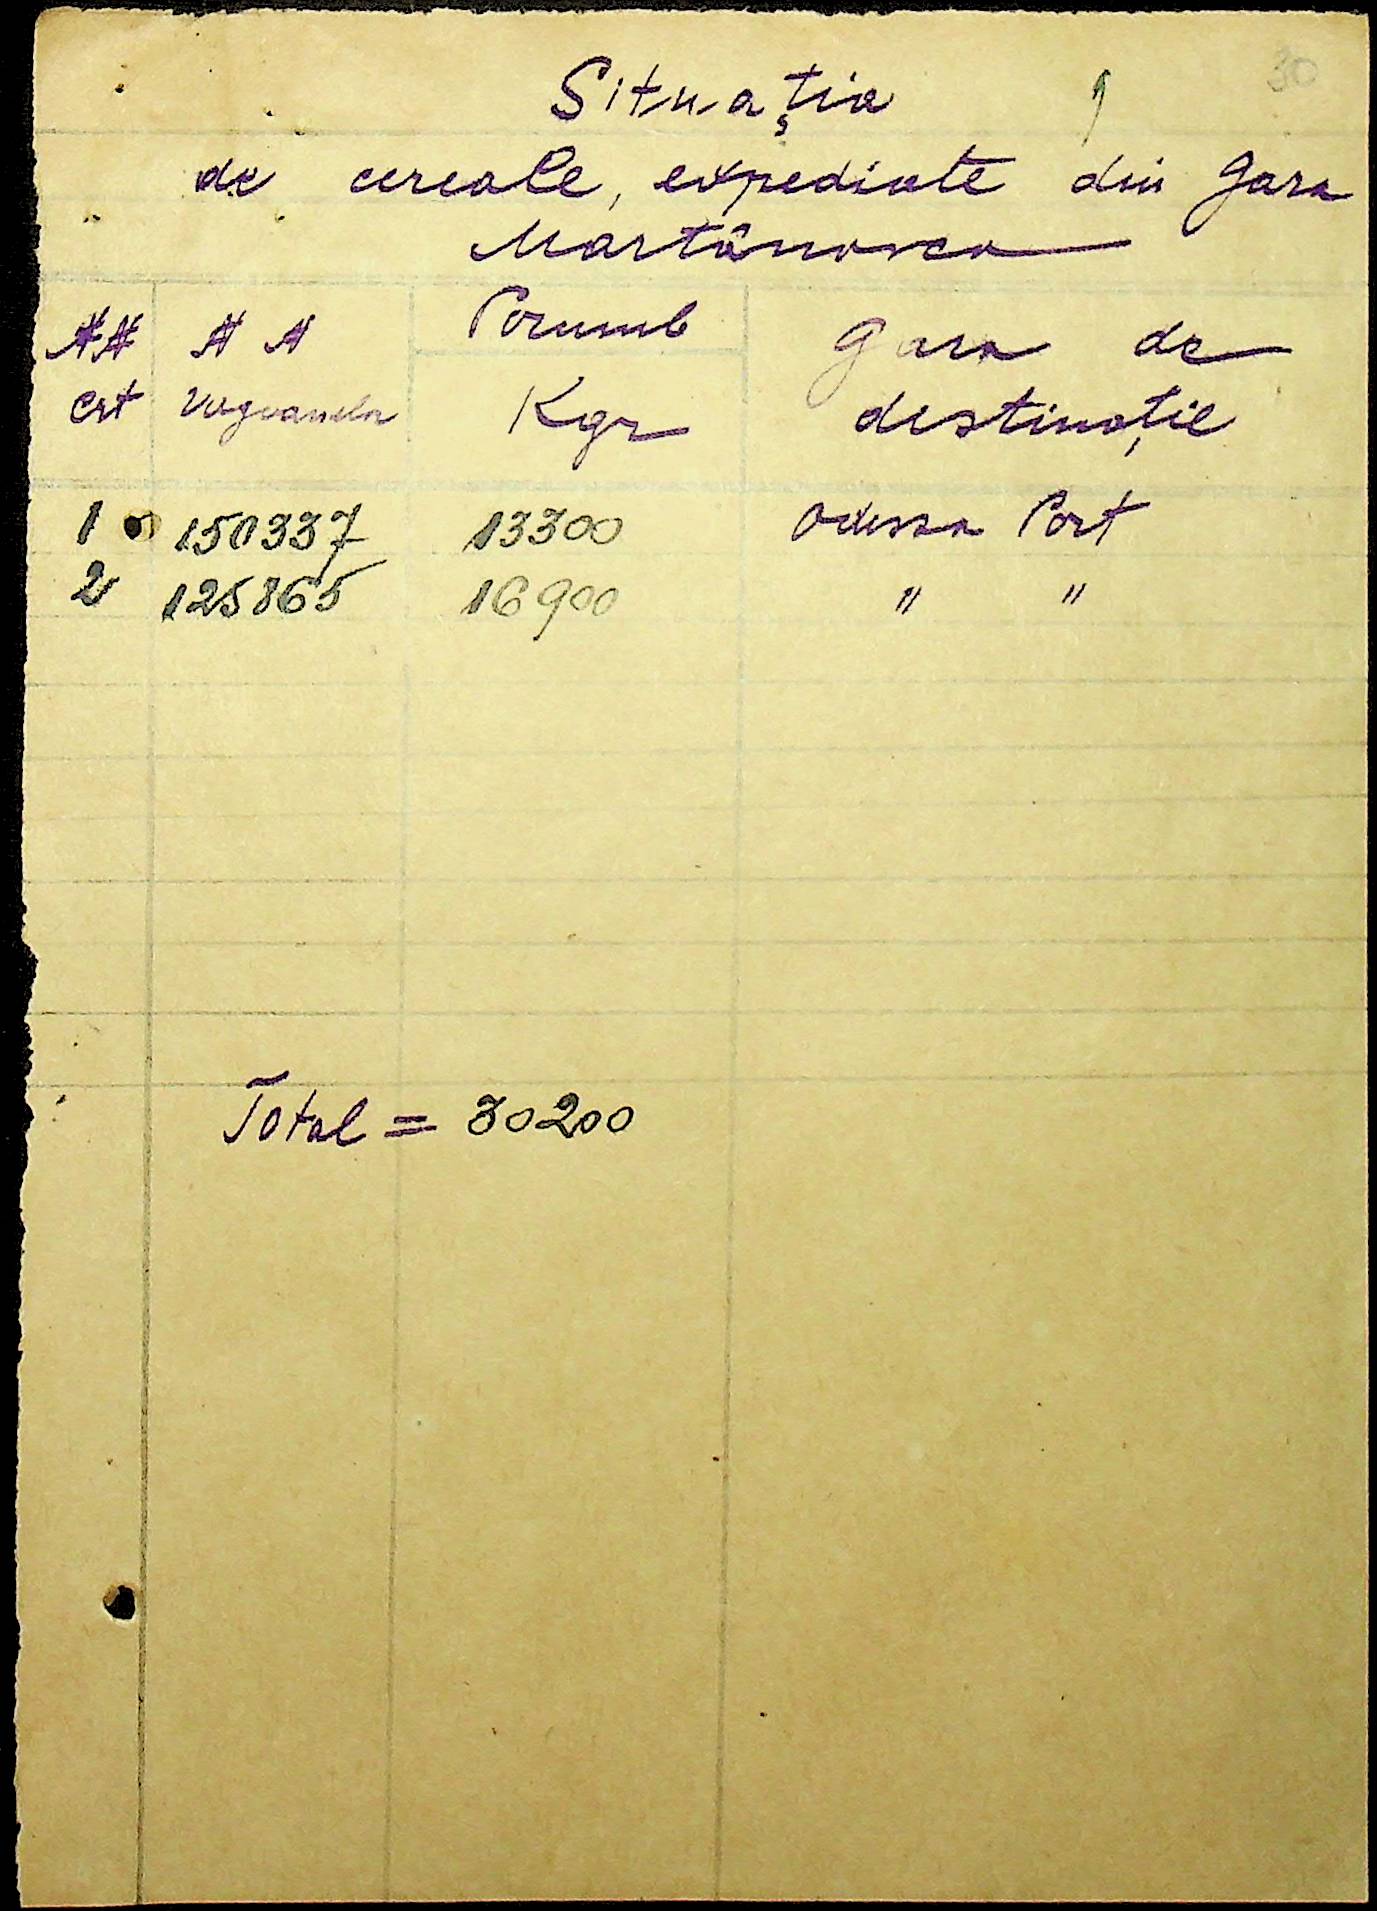 30
Situația
de cereale, expediate din Gara
Martânovca
NN Crt | NN Vagoanelor | Porumb Kgr | Gara de destinație
1 150337 13300 Odessa Port
2 125865 16900 " "
Total = 30200